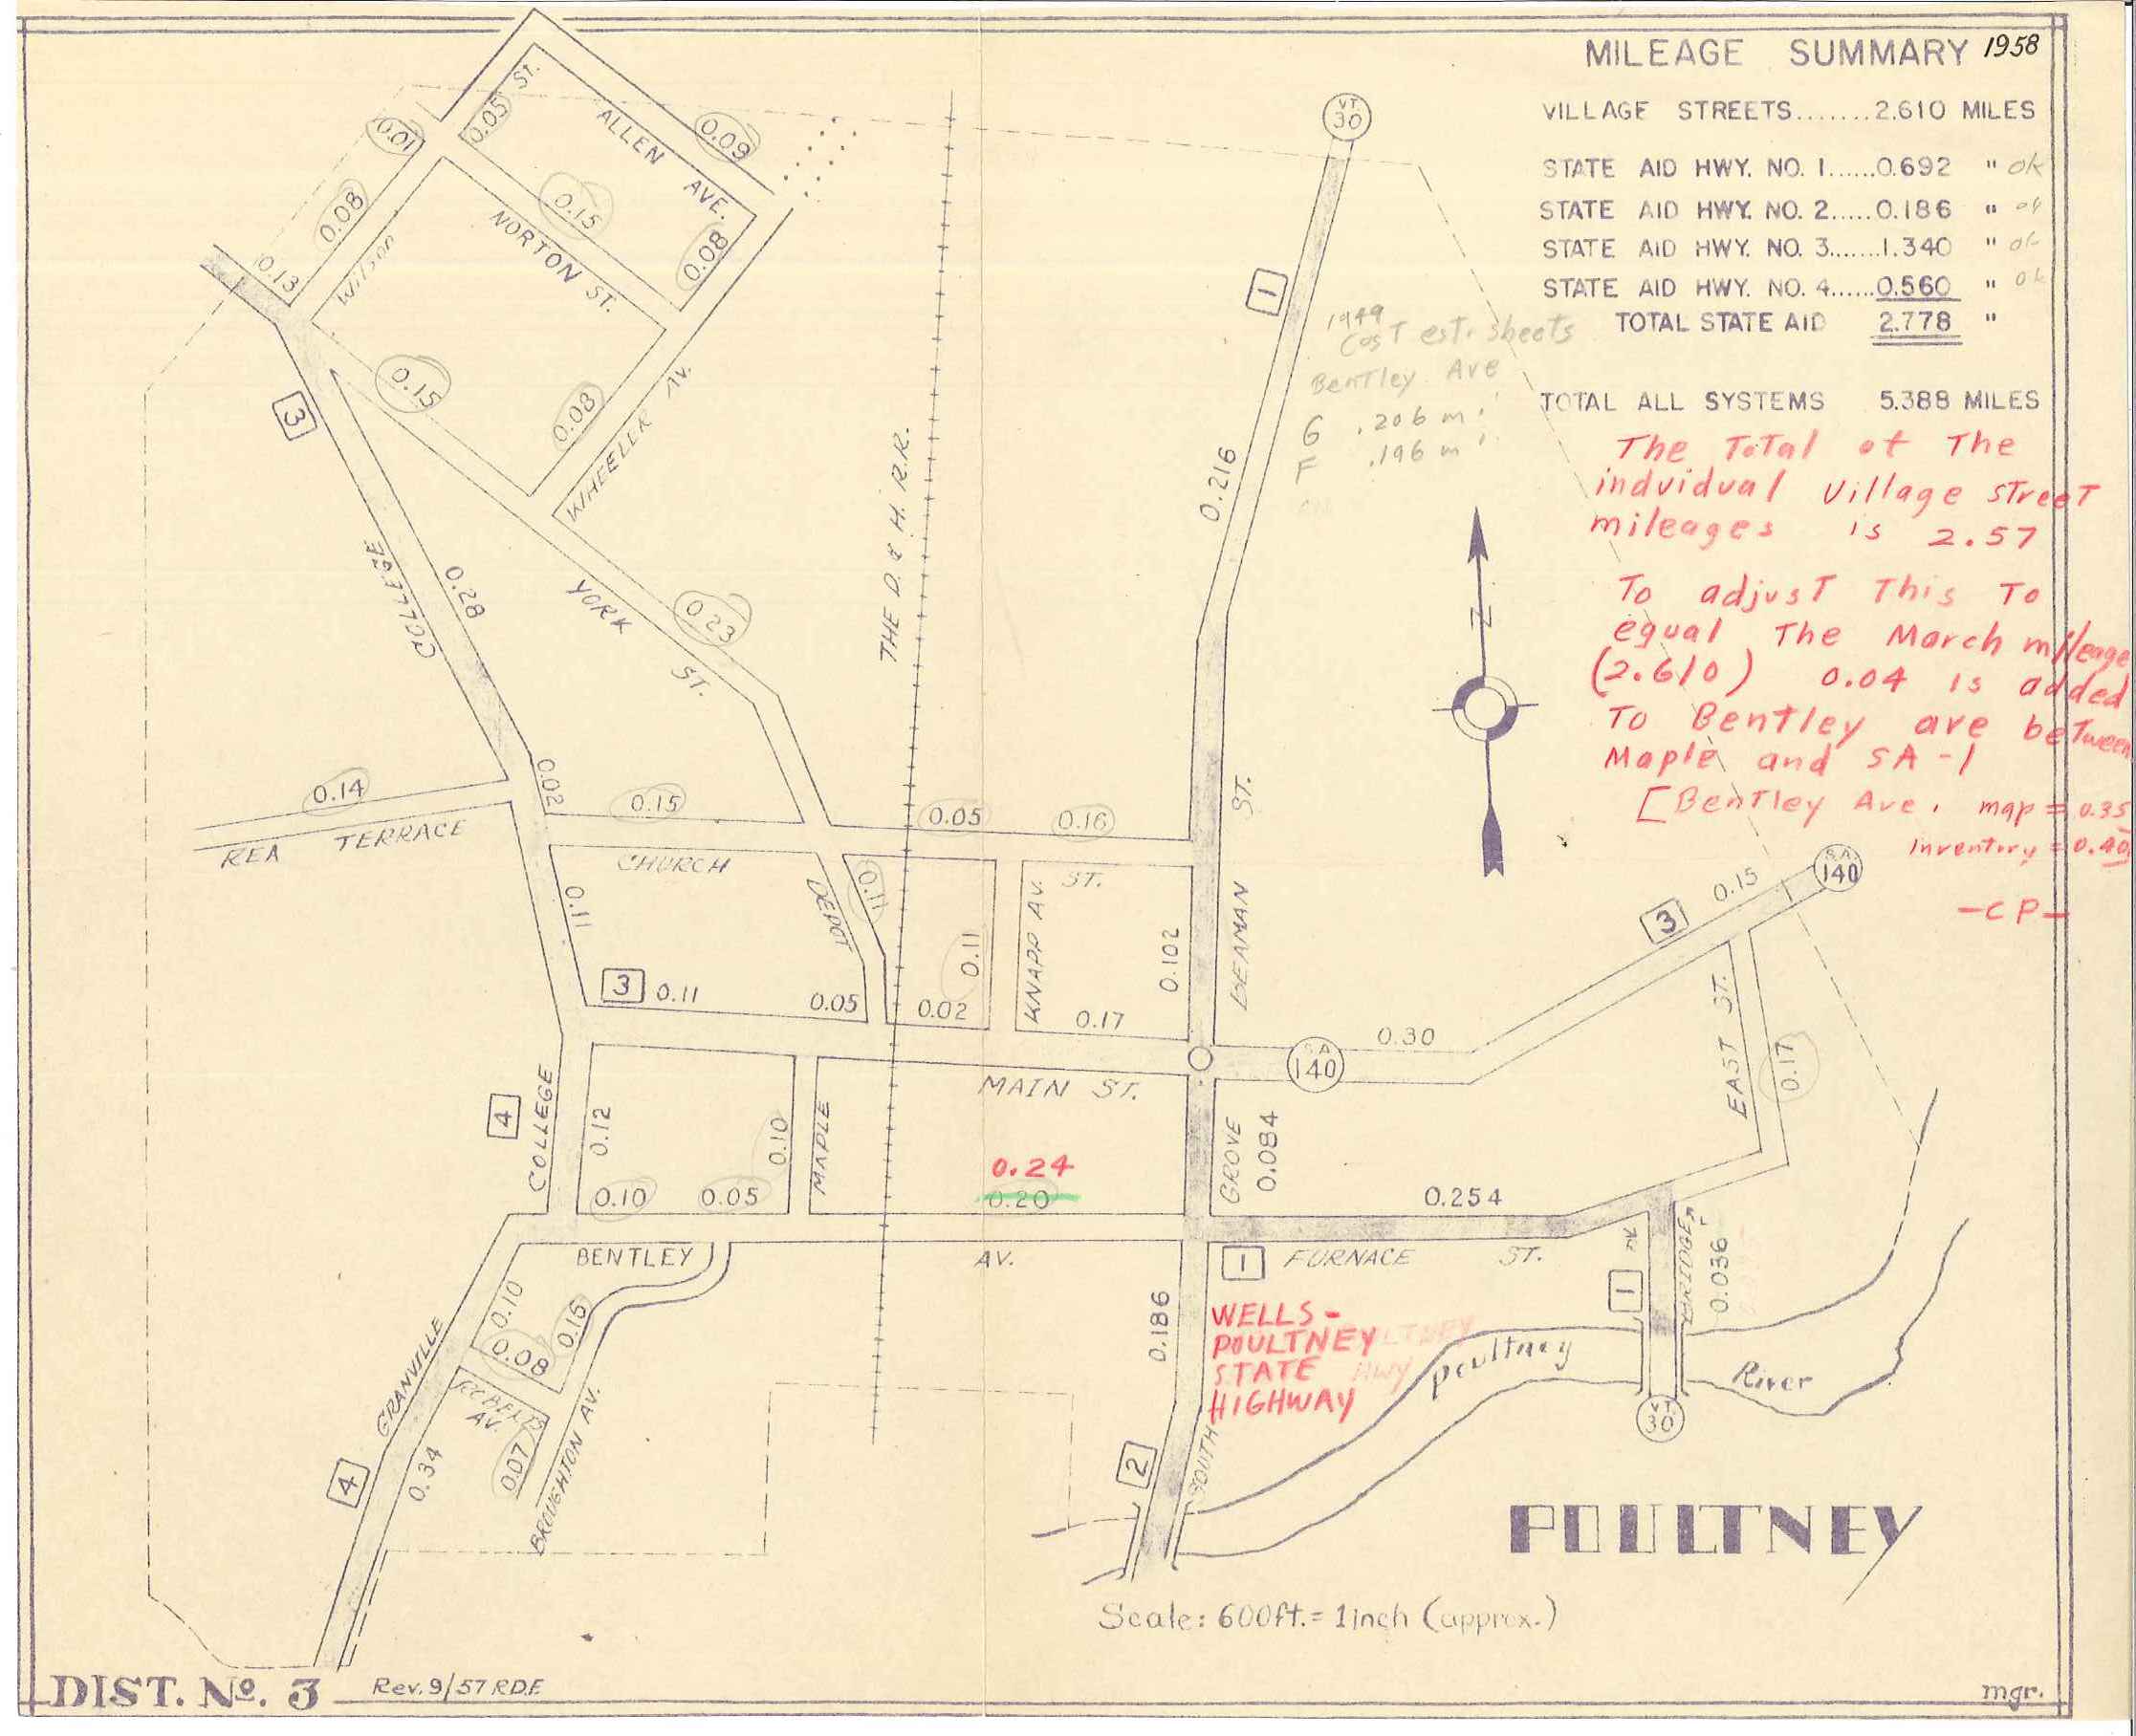 MILEAGE SUMMARY 1958
VILLAGE STREETS.......2.610 MILES
STATE AID HWY. NO. 1......0.692 " ok
STATE AID HWY. NO. 2.....0.186 " ok
STATE AID HWY. NO. 3.......1.340 " ok
STATE AID HWY. NO. 4......0.560 " ok
TOTAL STATE AID 2.778 "
TOTAL ALL SYSTEMS 5.388 MILES
The Total of The
indvidual Village STreeT
mileages is 2.57
To adjusT This To
equal The March mileage
(2.610) 0.04 is added
To Bentley are beTween
Maple and SA-1
[Bentley Ave. map = 0.35
inventory = 0.40
-CP-
1949
CosT est. sheets
BenTley Ave
G .206 mi
F .196 mi
VT.
30
1
0.216
0.05
ST.
ALLEN AVE.
0.09
0.01
0.08
0.15
NORTON ST.
0.08
0.13
Wilson
3
0.15
0.08
WHEELER AV.
THE D. & H. R.R.
COLLEGE
0.28
YORK ST.
0.23
N
0.14
REA TERRACE
0.02
0.15
0.05
0.16
CHURCH ST.
BEAMAN ST.
0.11
DEPOT
0.11
0.11
KNAPP AV.
0.102
S.A.
140
0.15
3
3
0.11
0.05
0.02
0.17
0.30
S.A.
140
EAST ST.
0.17
MAIN ST.
4
COLLEGE
0.12
0.10
MAPLE
0.24
0.20
GROVE
0.084
0.10
0.05
0.254
BENTLEY AV.
1
FURNACE ST.
1
BRIDGE
0.036
0.10
0.16
0.08
0.186
WELLS -
POULTNEY
STATE
HIGHWAY
Poultney River
VT.
30
GRANVILLE
ROBERTS
AV.
0.07
BROUGHTON AV.
4
0.34
2
SOUTH
POULTNEY
Scale: 600ft.= 1inch (approx.)
DIST. No. 3
Rev. 9/57 R.D.F.
mgr.